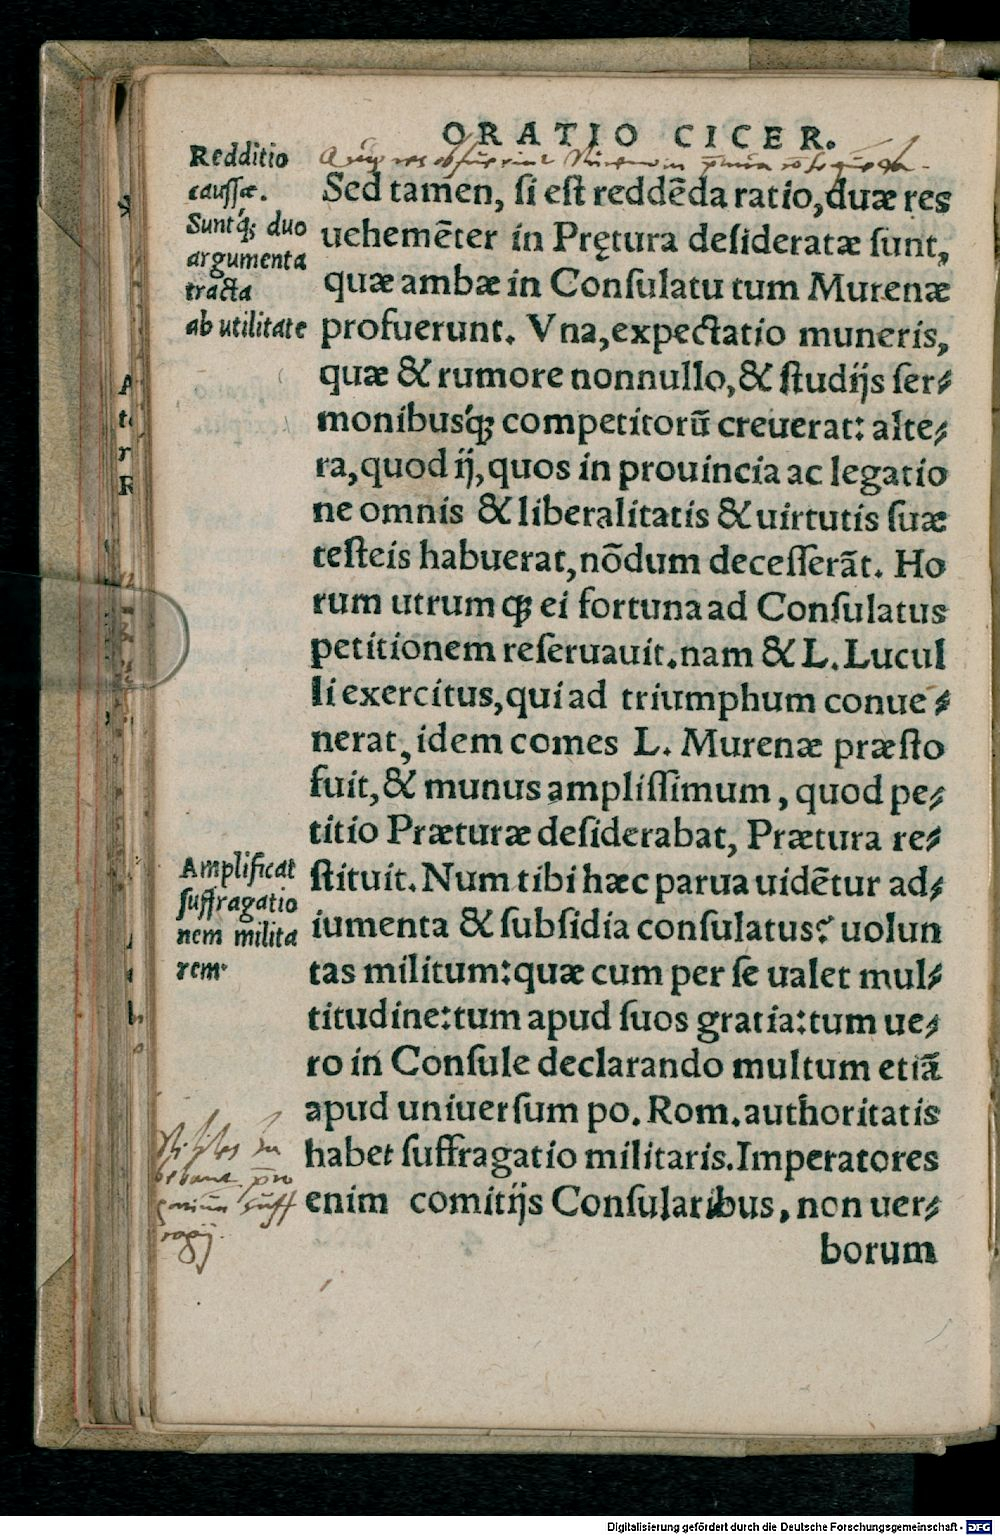 ORATIO CICER.
Redditio
caussæ.
Suntq́; duo
argumenta
tracta
ab utilitate
Sed tamen, si est reddēda ratio, duæ res
uehemēter in Prętura desideratæ sunt,
quæ ambæ in Consulatu tum Murenæ
profuerunt. Vna, expectatio muneris,
quæ & rumore nonnullo, & studijs ser-
monibusq́; competitorū creuerat: alte-
ra, quod ij, quos in prouincia ac legatio
ne omnis & liberalitatis & uirtutis suæ
testeis habuerat, nōdum decesserāt. Ho
rum utrumq; ei fortuna ad Consulatus
petitionem reseruauit. nam & L. Lucul
li exercitus, qui ad triumphum conue-
nerat, idem comes L. Murenæ præsto
fuit, & munus amplissimum, quod pe-
titio Præturæ desiderabat, Prætura re-
stituit. Num tibi hæc parua uidētur ad-
iumenta & subsidia consulatus? uolun
tas militum: quæ cum per se ualet mul-
titudine: tum apud suos gratia: tum ue-
ro in Consule declarando multum etiā
apud uniuersum po. Rom. authoritatis
habet suffragatio militaris. Imperatores
enim comitijs Consularibus, non uer-
borum
Amplificat
suffragatio
nem milita
rem
Digitalisierung gefördert durch die Deutsche Forschungsgemeinschaft - DFG